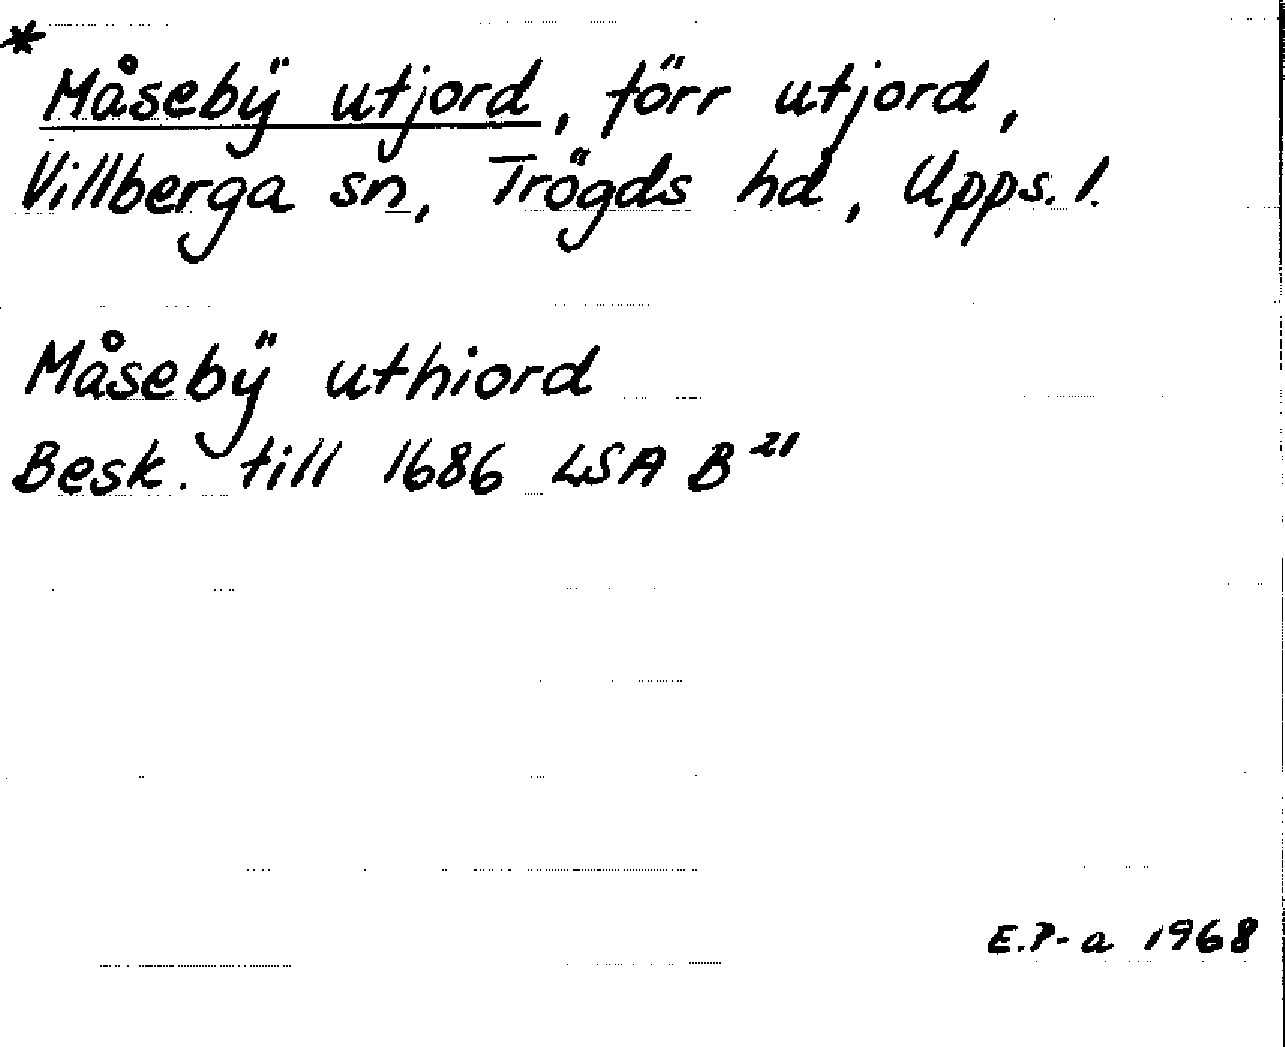 * Måsebÿ utjord, förr utjord,
Villberga sn, Trögds hd, Upps. l.
Måsebÿ uthiord
Besk. till 1686 LSA B²¹
E.P-a 1968